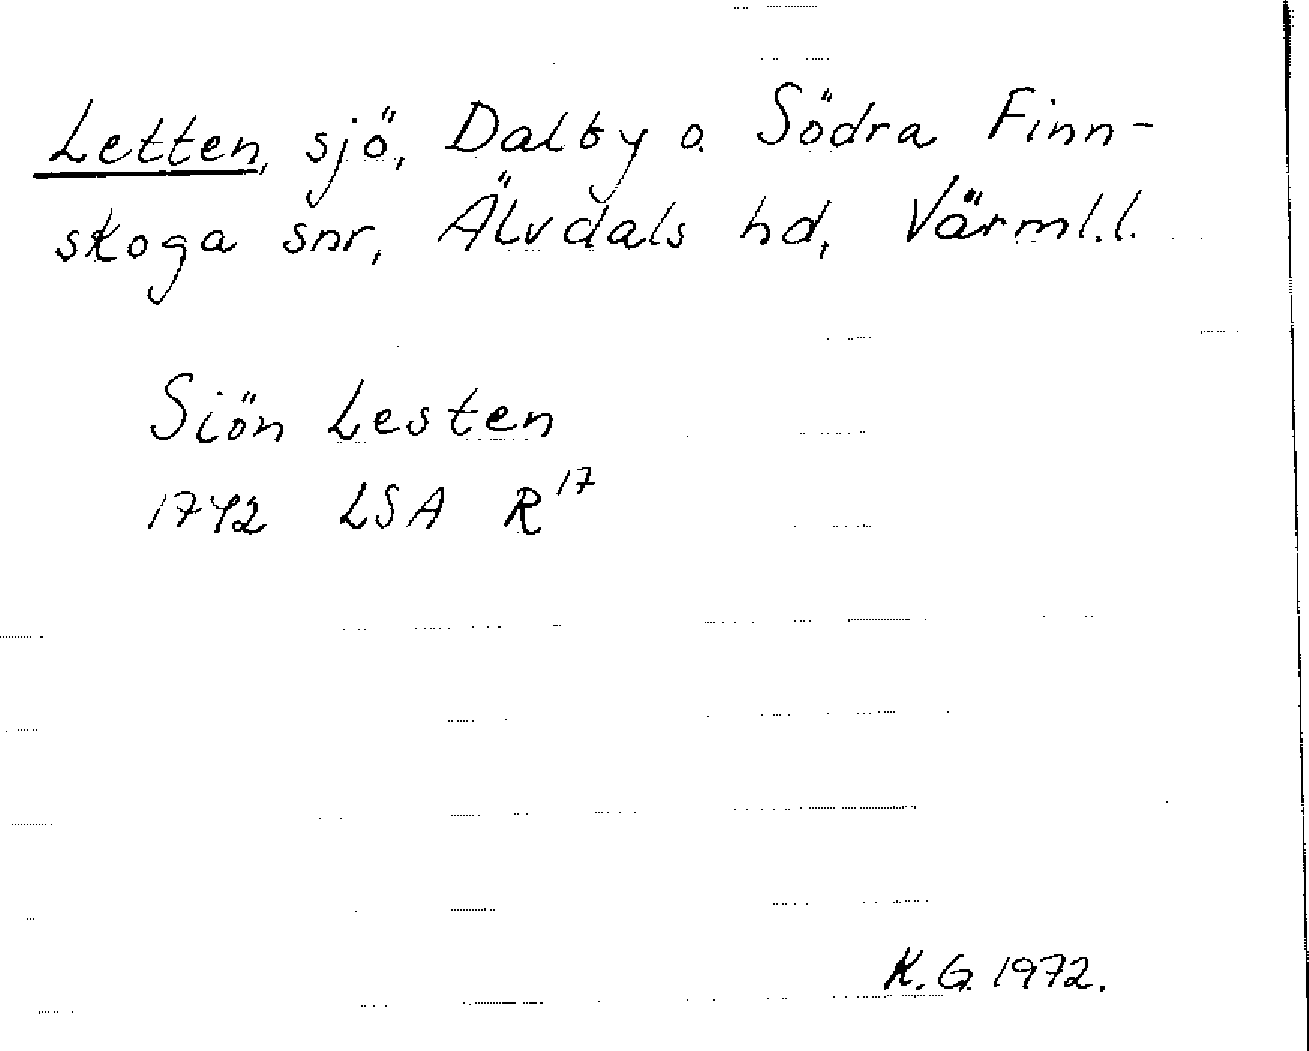 Letten, sjö, Dalby o. Södra Finn-
skoga snr, Älvdals hd, Värml.l.
Siön Lesten
1742 LSA R17
K.G. 1972.